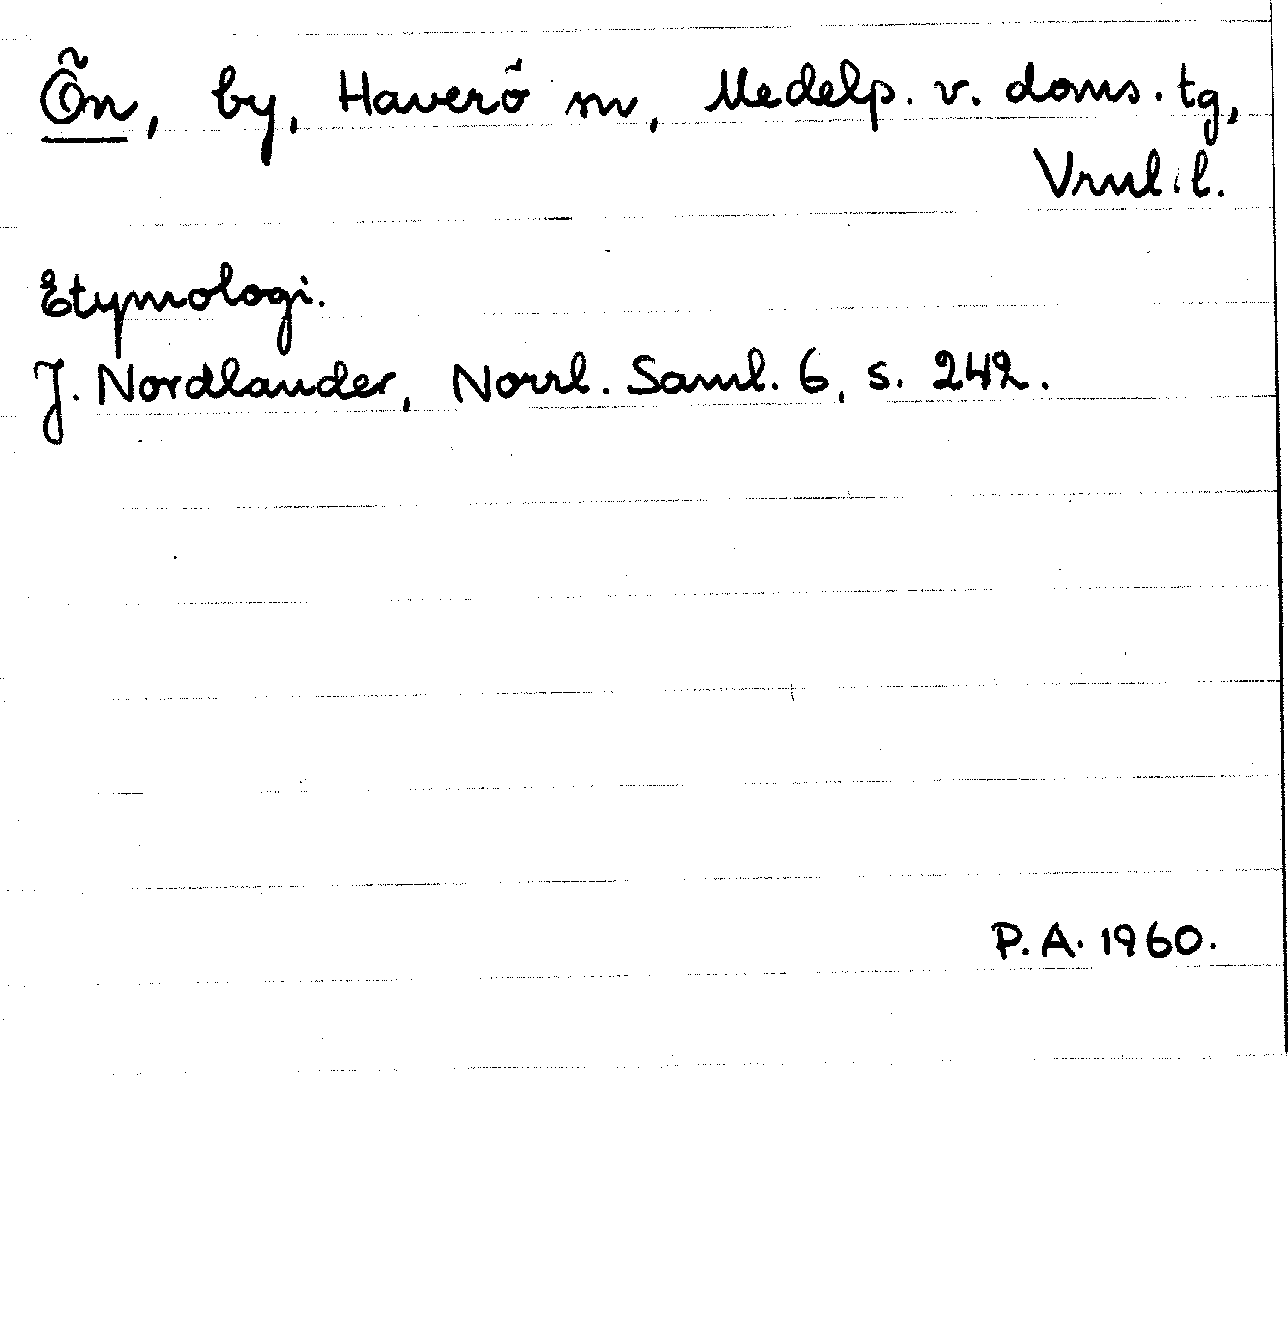 Ön, by, Haverö sn, Medelp. v. doms. tg,
Vrnl. l.
Etymologi.
J. Nordlander, Norrl. Saml. 6, s. 242.
P.A. 1960.